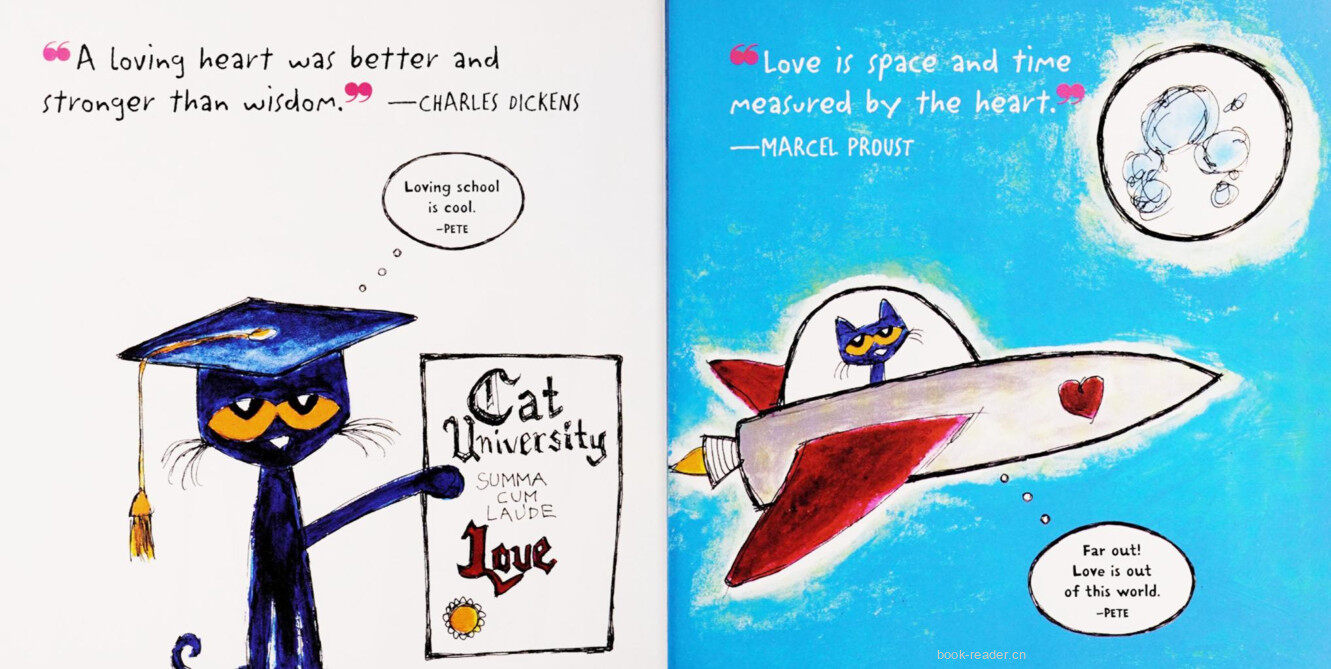 “A loving heart was better and
stronger than wisdom.” —CHARLES DICKENS
Loving school
is cool.
–PETE
Cat
University
SUMMA
CUM
LAUDE
Love
“Love is space and time
measured by the heart.”
—MARCEL PROUST
Far out!
Love is out
of this world.
–PETE
book-reader.cn